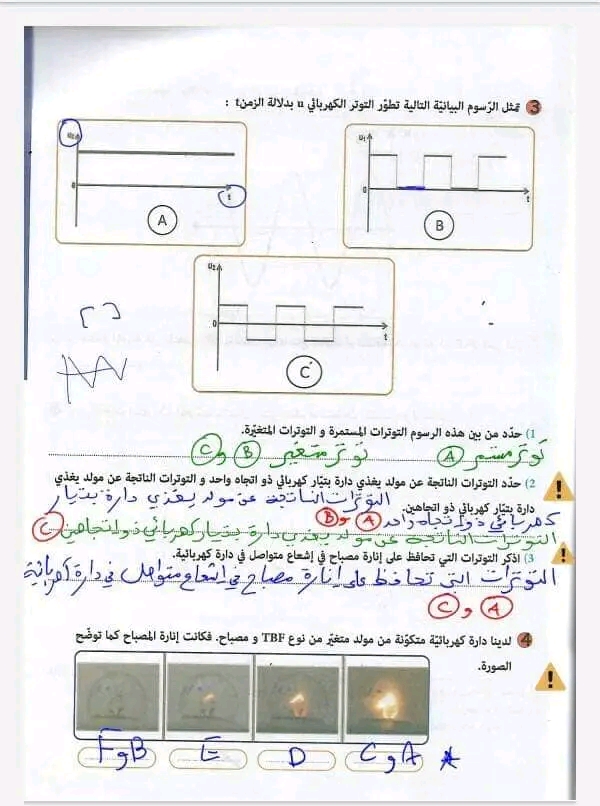 3 تمثل الرّسوم البيانيّة التالية تطوّر التوتر الكهربائي u بدلالة الزمن t :
u₂
0
t
A
u₁
0
t
B
u₂
0
t
C
1) حدّد من بين هذه الرسوم التوترات المستمرة و التوترات المتغيّرة.
توتر مستمر A توتر متغير B و C
2) حدّد التوترات الناتجة عن مولد يغذي دارة بتيّار كهربائي ذو اتجاه واحد و التوترات الناتجة عن مولد يغذي
دارة بتيّار كهربائي ذو اتجاهين. التوترات الناتجة عن مولد يغذي دارة بتيار
كهربائي ذو اتجاه واحد A و B
التوترات الناتجة عن مولد يغذي دارة بتيار كهربائي ذو اتجاهين C
3) اذكر التوترات التي تحافظ على إنارة مصباح في إشعاع متواصل في دارة كهربائية.
التوترات التي تحافظ على إنارة مصباح في إشعاع متواصل في دارة كهربائية
A و C
4 لدينا دارة كهربائيّة متكوّنة من مولد متغيّر من نوع TBF و مصباح. فكانت إنارة المصباح كما توضّح
الصورة.
A و C
D
E
B و F